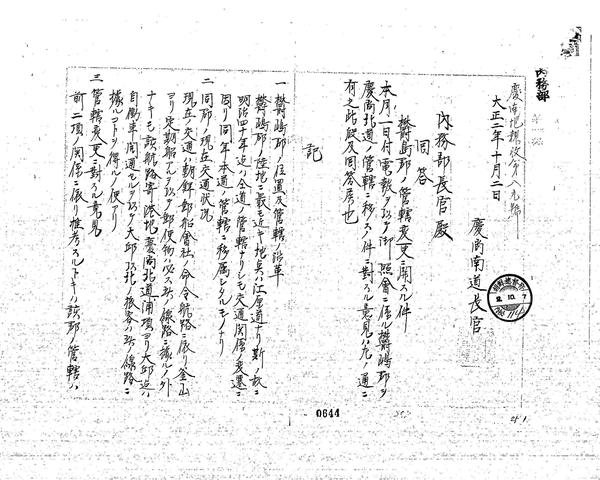 内務部
慶南地親收第八九號
大正二年十月二日
慶尚南道長官
内務部長官殿
欝島郡ノ管轄變更ニ関スル件
回答
本月一日付電報ヲ以テ御照會ニ係ル欝島郡ヲ
慶尚北道ノ管轄ニ移スノ件ニ對スル意見ハ左ノ通ニ
有之此段及回答候也
記
一 欝島郡ノ位置及管轄ノ沿革
欝島郡ノ陸地ニ最モ近キ地点ハ江原道ナリ斯ノ故ニ
明治四十年迄ハ仝道ノ管轄ナリシモ交通関係ノ変遷ニ
因リ同年本道ノ管轄ニ移属シタルモノナリ
二 同郡ノ現在交通状況
現在ノ交通ハ朝鮮郵船會社ノ命令航路ニ依リ釜山
ヨリ定期船アルヲ以テ郵便物ハ必ス此ノ線路ニ據ルノ外
ナキモ該航路寄港地慶尚北道浦項ヨリ大邱迄ハ
自働車開通セルヲ以テ大邱以北ノ旅客ハ此ノ線路ニ
據ルコトヲ得ルノ便アリ
三 管轄変更ニ對スル意見
前二項ノ関係ニ依リ推考スルトキハ該郡ノ管轄ハ
2.10.7
0644